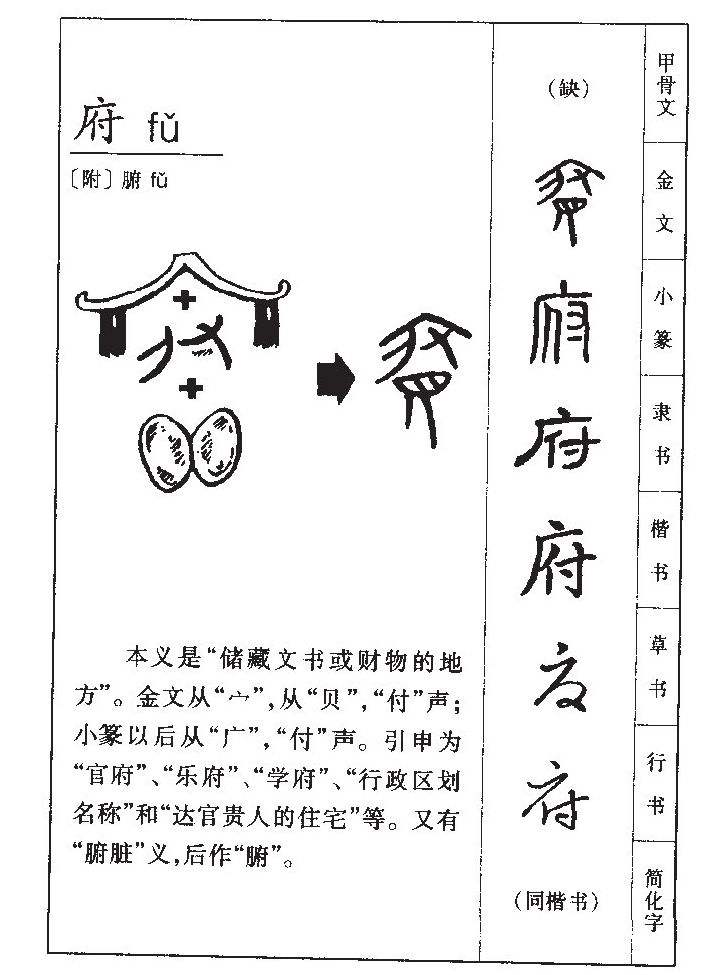 府 fǔ
〔附〕腑 fǔ
本义是“储藏文书或财物的地
方”。金文从“宀”,从“贝”,“付”声;
小篆以后从“广”,“付”声。引申为
“官府”、“乐府”、“学府”、“行政区划
名称”和“达官贵人的住宅”等。又有
“腑脏”义,后作“腑”。
(缺)
甲骨文
金文
府
小篆
府
隶书
府
楷书
府
草书
府
行书
(同楷书)
简化字